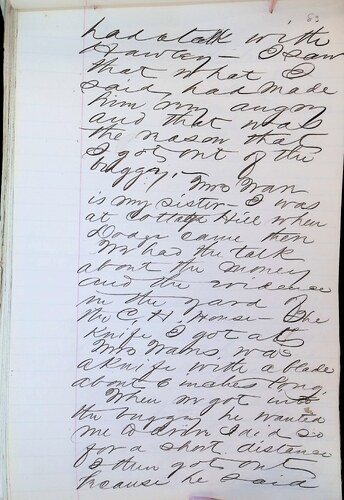 83
had a talk with
Hawley — I saw
that what I
said had made
him very angry
and that was
the reason that
I got out of the
buggy. — Mrs Warn
is my sister — I was
at Cottage Hill when
Dodge came there
We had the talk
about the money
and the evidence
in the yard of
the C. H. House — The
Knife I got at
Mrs Warns, was
a knife with a blade
about 6 inches long.
When we got into
the buggy he wanted
me to drive I did so
for a short distance
I then got out
because he said